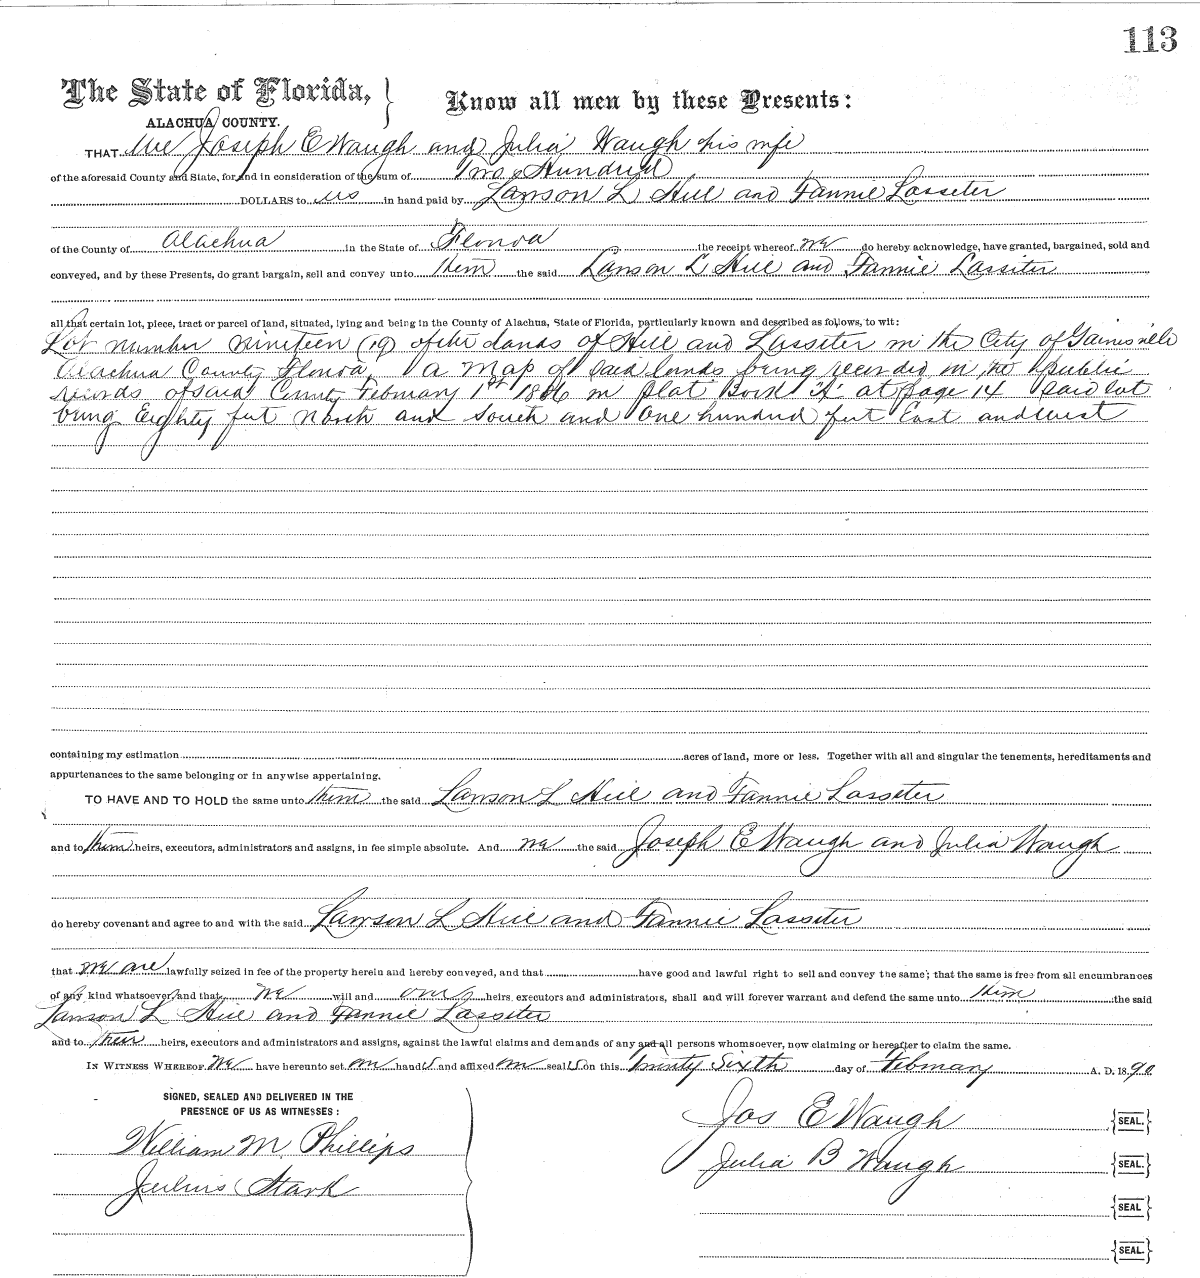 113
The State of Florida,
ALACHUA COUNTY.
Know all men by these Presents:
THAT We Joseph E Waugh and Julia Waugh his wife
of the aforesaid County and State, for and in consideration of the sum of Two Hundred
DOLLARS to us in hand paid by Lawson L Hill and Fannie Lasseter
of the County of Alachua in the State of Florida the receipt whereof we do hereby acknowledge, have granted, bargained, sold and
conveyed, and by these Presents, do grant bargain, sell and convey unto them the said Lawson L Hill and Fannie Lasseter
all that certain lot, piece, tract or parcel of land, situated, lying and being in the County of Alachua, State of Florida, particularly known and described as follows, to wit:
Lot number nineteen (19) of the lands of Hill and Lasseter in the City of Gainesville
Alachua County Florida, a Map of said lands being recorded in the public
records of said County February 1st 1886 in Plat Book "A" at page 14 said lot
being Eighty feet North and South and One hundred feet East and West
containing my estimation acres of land, more or less. Together with all and singular the tenements, hereditaments and
appurtenances to the same belonging or in anywise appertaining.
TO HAVE AND TO HOLD the same unto them the said Lawson L Hill and Fannie Lasseter
and to them heirs, executors, administrators and assigns, in fee simple absolute. And we the said Joseph E Waugh and Julia Waugh
do hereby covenant and agree to and with the said Lawson L Hill and Fannie Lasseter
that we are lawfully seized in fee of the property herein and hereby conveyed, and that have good and lawful right to sell and convey the same; that the same is free from all encumbrances
of any kind whatsoever and that we will and our heirs, executors and administrators, shall and will forever warrant and defend the same unto them the said
Lawson L Hill and Fannie Lasseter
and to their heirs, executors and administrators and assigns, against the lawful claims and demands of any and all persons whomsoever, now claiming or hereafter to claim the same.
IN WITNESS WHEREOF We have hereunto set our hands and affixed our seals on this Twenty Sixth day of February A. D. 1890
SIGNED, SEALED AND DELIVERED IN THE
PRESENCE OF US AS WITNESSES:
William M. Phillips
Julius Stark
Jos E Waugh {SEAL.}
Julia B Waugh {SEAL.}
{SEAL}
{SEAL.}